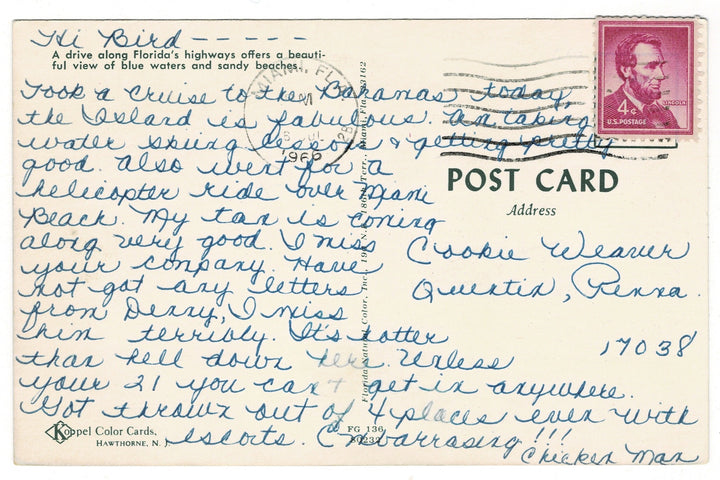 Hi Bird -----
A drive along Florida's highways offers a beauti-
ful view of blue waters and sandy beaches.
MIAMI, FLA.
PM
1966
4¢
LINCOLN
U.S. POSTAGE
Took a cruise to the Bahamas today,
the Island is fabulous. am taking
water skiing lessons & getting pretty
good. Also went for a
helicopter ride over Mami
Beach. My tan is coming
along very good. I miss
your company. Have
not got any letters
from Denny, I miss
him terribly. It's hotter
than hell down here. Unless
your 21 you can't get in anywhere.
Got thrown out of 4 places even with
escorts. Embarrasing!!!
Chicken Man
POST CARD
Address
Cookie Weaver
Quentin, Penna.
17038
Florida Natural Color, Inc.,
Terr., Miami, Fla. 33162
Koppel Color Cards,
HAWTHORNE, N. J.
FG 136